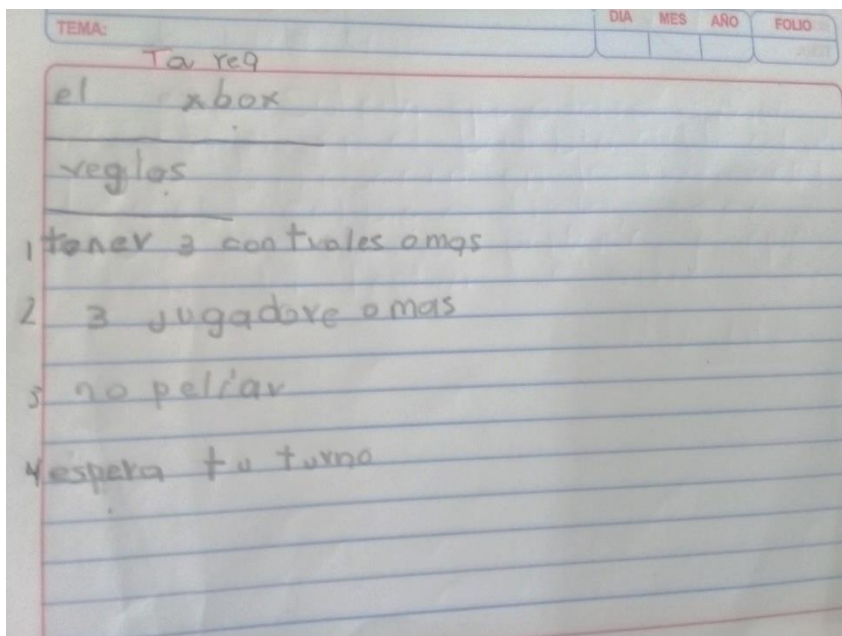 TEMA:
DIA MES AÑO FOLIO
Tarea
el xbox
reglas
1 tener 3 controles omas
2 3 jugadore omas
3 no peliar
4 espera tu turno